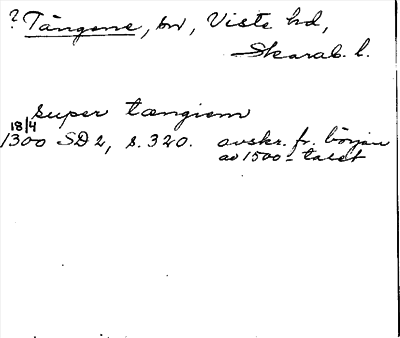 ? Tängene, sn, Viste hd,
Skarab. l.
super tængiom
18/4
1300 SD 2, s. 320. avskr. fr. början
av 1500-talet